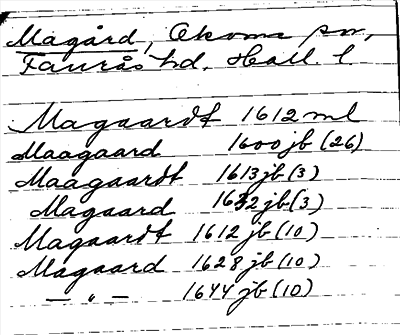 Magård, Okome sn,
Faurås hd, Hall. l.
Magaardt 1612 ml
Maagaard 1600 jb (26)
Maagaardt 1613 jb (3)
Magaard 1632 jb (3)
Magaardt 1612 jb (10)
Magaard 1628 jb (10)
— " — 1644 jb (10)